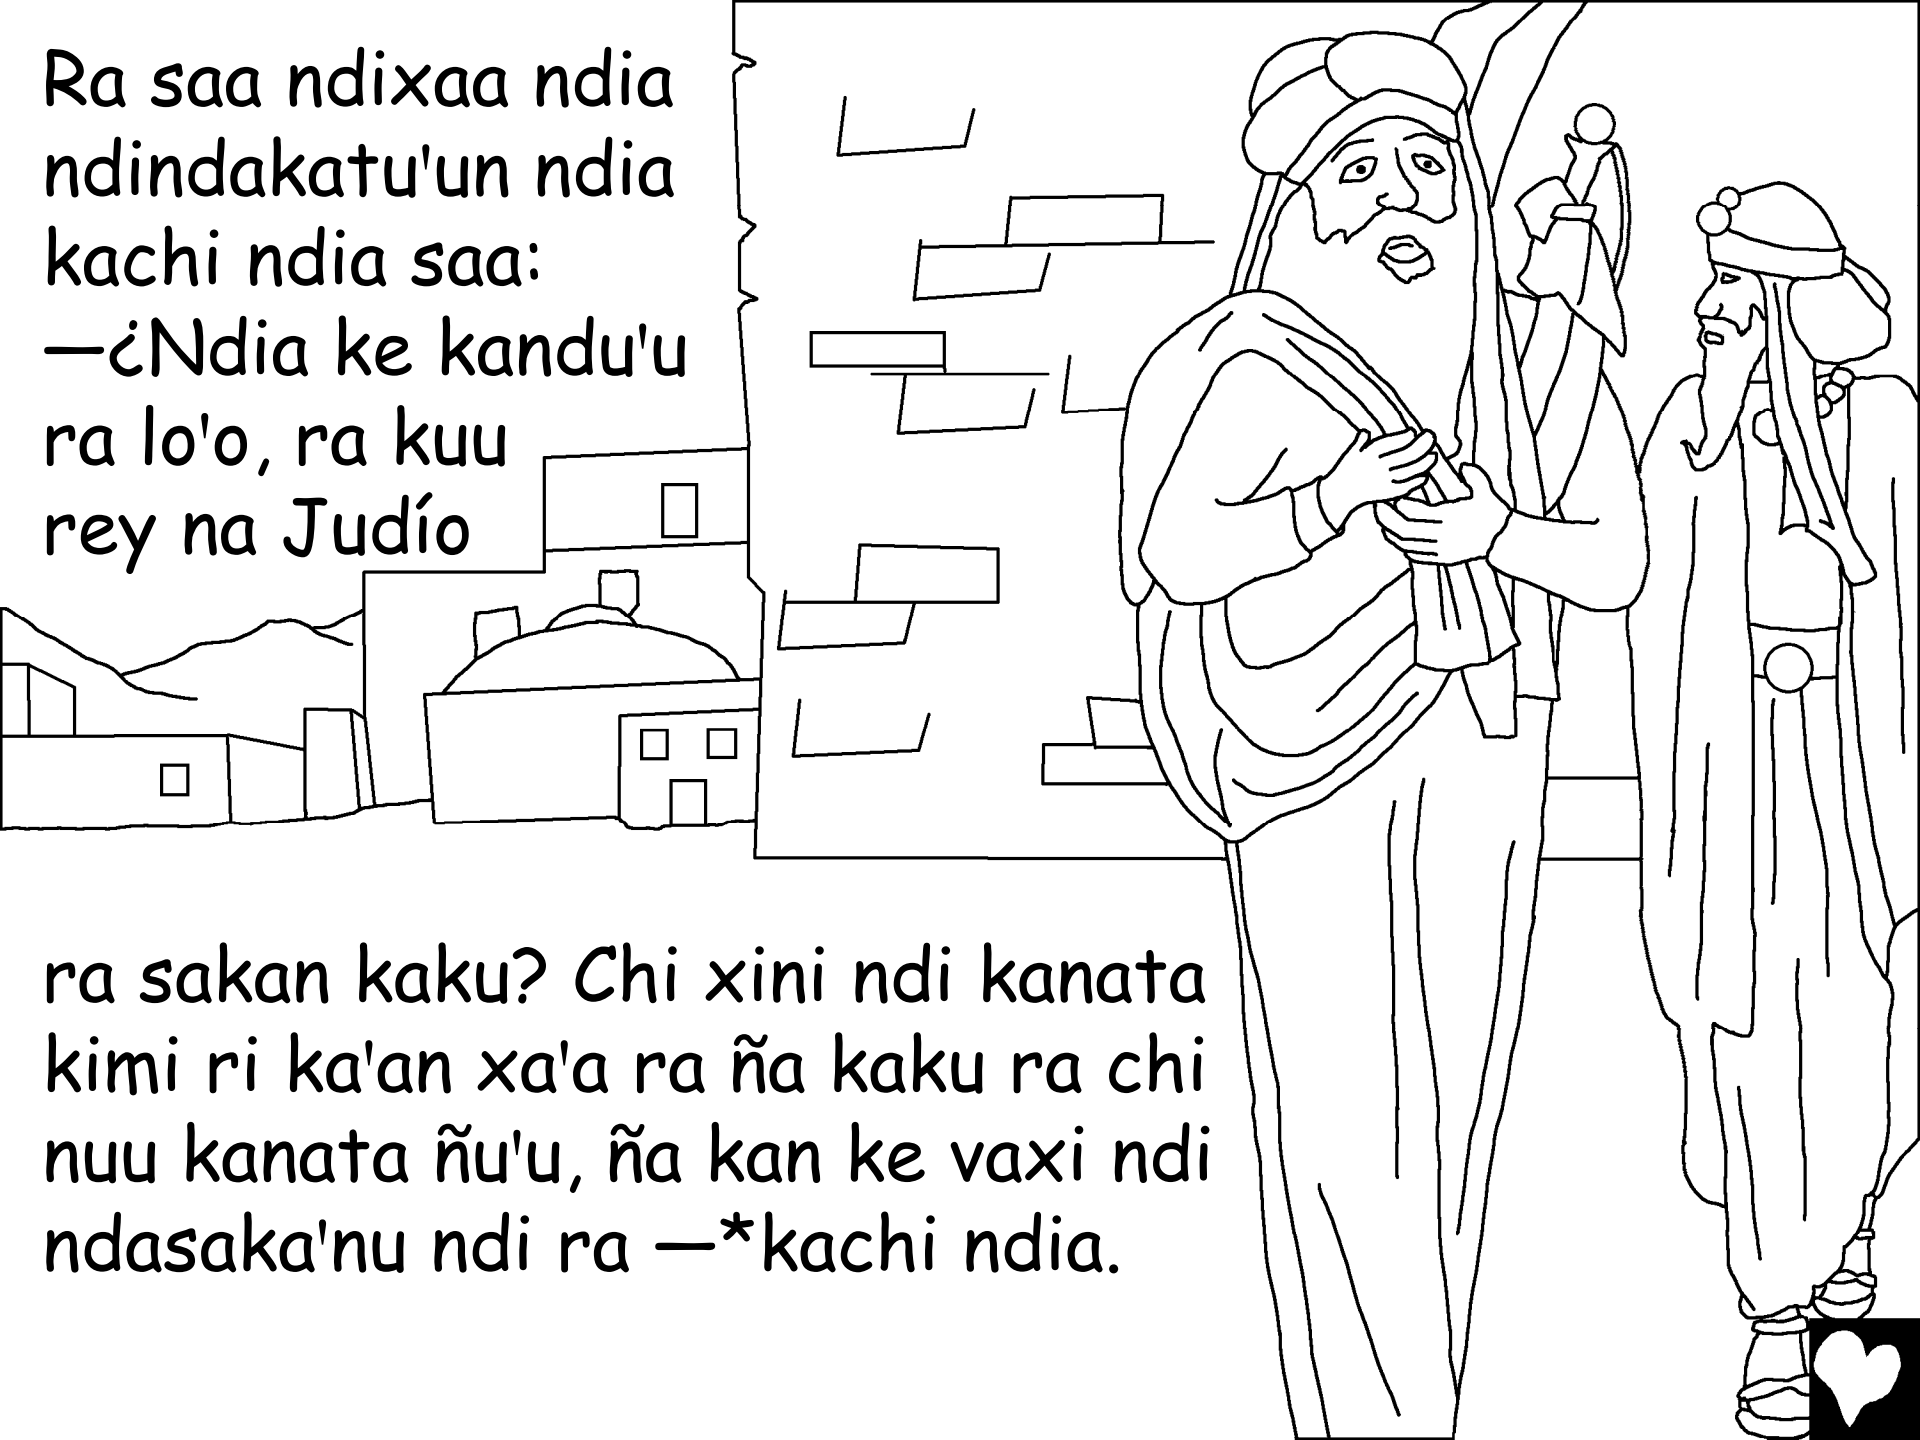 Ra saa ndixaa ndia
ndindakatu'un ndia
kachi ndia saa:
—¿Ndia ke kandu'u
ra lo'o, ra kuu
rey na Judío
ra sakan kaku? Chi xini ndi kanata
kimi ri ka'an xa'a ra ña kaku ra chi
nuu kanata ñu'u, ña kan ke vaxi ndi
ndasaka'nu ndi ra —*kachi ndia.